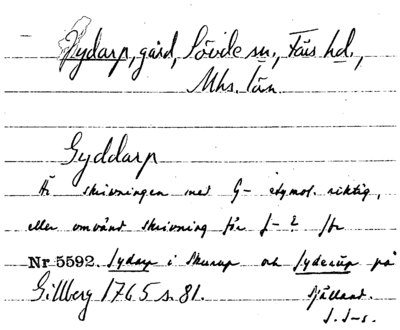 Jydarp, gård, Sövde sn., Färs hd.,
Mhs. län.
Gyddarp
Är skrivningen med G- etymol. riktig,
eller omvänd skrivning för J-? Jfr
Nr 5592. Jydarp i Skurup och Jyderup på
Gillberg 1765 s. 81. Själland.
J. S-s.